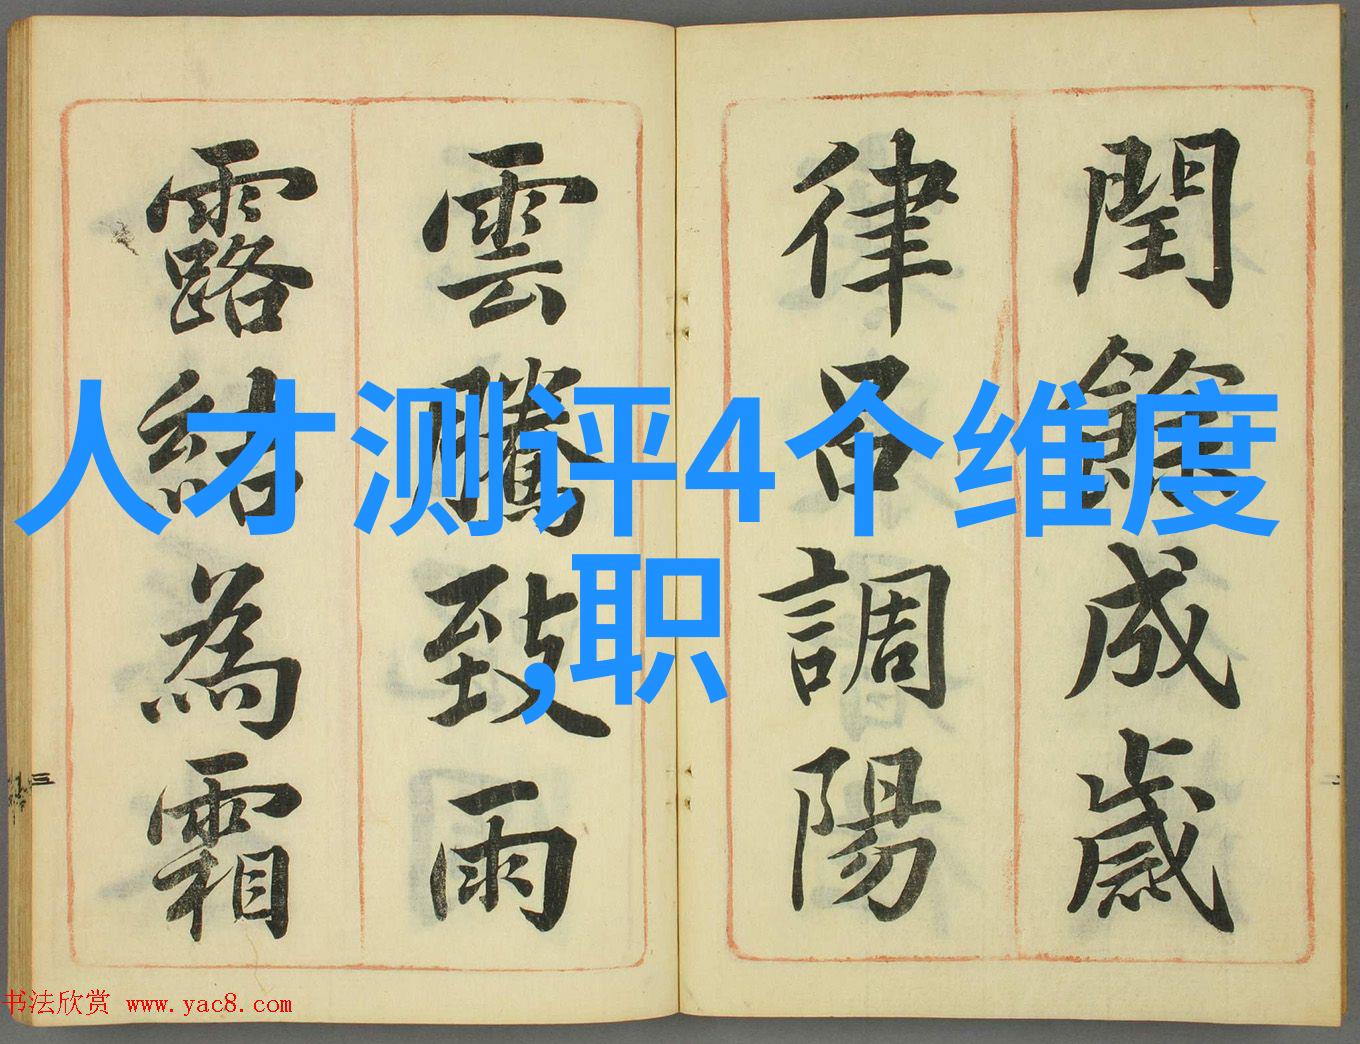 閏餘成歲
律呂調陽
雲騰致雨
露結為霜
人才测评4个维度
,职
三
二
书法欣赏 www.yac8.com